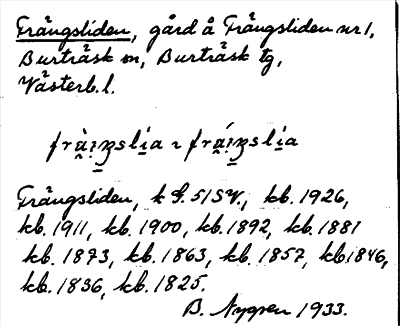 Trångsliden, gård å Trångsliden nr 1,
Burträsk sn, Burträsk tg,
Västerb. l.
Trångsliden, k G. 51 SV, kb. 1926,
kb. 1911, kb. 1900, kb. 1892, kb. 1881
kb. 1873, kb. 1863, kb. 1857, kb 1846,
kb. 1836, kb. 1825.
B. Nygren 1933.